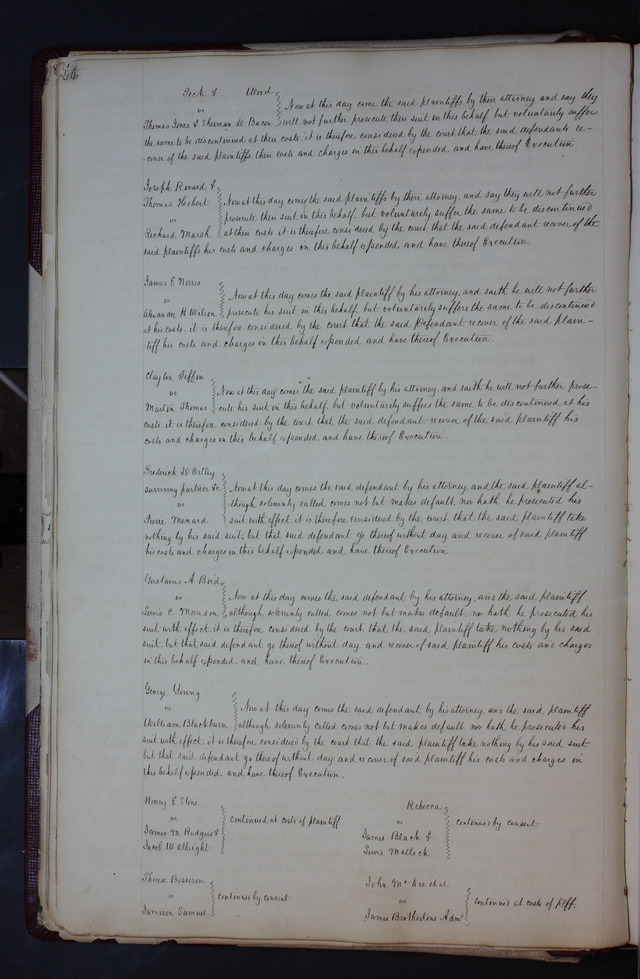 26
Peck & Ward
vs
Thomas Jones & Sherman de Bacon
Now at this day come the said plaintiffs by their attorney and say they
will not further prosecute their suit in this behalf but voluntarily suffer
the same to be discontinued at their costs it is therefore considered by the court that the said defendants re-
cover of the said plaintiffs their costs and charges in this behalf expended, and have thereof Execution.
Joseph Renard &
Thomas Hebert
vs
Richard Marsh
Now at this day comes the said plaintiffs by their attorney, and say they will not further
prosecute their suit in this behalf, but voluntarily suffer the same to be discontinued
at their costs it is therefore considered by the court that the said defendant recover of the
said plaintiffs his costs and charges in this behalf expended and have thereof Execution.
James E Norris
vs
Alexander H Wilson
Now at this day comes the said plaintiff by his attorney, and saith he will not further
prosecute his suit in this behalf, but voluntarily suffers the same to be discontinued
at his costs. it is therefore considered by the court that the said Defendant recover of the said plain-
tiff his costs and charges in this behalf expended and have thereof Execution.
Clayton Tiffin
vs
Martin Thomas
Now at this day comes the said plaintiff by his attorney, and saith he will not further prose-
cute his suit in this behalf, but voluntarily suffers the same to be discontinued at his
costs. it is therefore considered by the court that the said defendant recover of the said plaintiff his
costs and charges in this behalf expended and have thereof Execution.
Frederick D Ortley
surviving partner &c
vs
Pierre Menard
Now at this day comes the said defendant by his attorney and the said plaintiff al-
though solemnly called comes not but makes default, nor hath he prosecuted his
suit with effect, it is therefore considered by the court, that the said plaintiff take
nothing by his said suit, but that said defendant go thereof without day and recover of said plaintiff
his costs and charges in this behalf expended, and have thereof Execution.
Gustavus A Bird
vs
Lewis C Manson
Now at this day comes the said defendant by his attorney, and the said plaintiff
although solemnly called comes not but makes default, nor hath he prosecuted his
suit with effect it is therefore considered by the court that the said plaintiff take nothing by his said
suit, but that said defendant go thereof without day and recover of said plaintiff his costs and charges
in this behalf expended, and have thereof Execution.
George Young
vs
William Blackburn
Now at this day comes the said defendant, by his attorney, and the said plaintiff
although, solemnly called comes not but makes default, nor hath he prosecuted his
suit with effect. it is therefore considered by the court that the said plaintiff take nothing by his said suit
but that said defendant go thereof without day and recover of said plaintiff his costs and charges in
this behalf expended and have thereof Execution.
Henry E Stone
vs
James M Rodgers &
Jacob W Albright
continued at costs of plaintiff
Rebecca
vs
James Black &
Lewis Matlock
continued by consent
Therese Bosseron
vs
Jamison Samuel
continued by consent
John McKee et al
vs
James Brothertons Admr
continued at costs of plff.